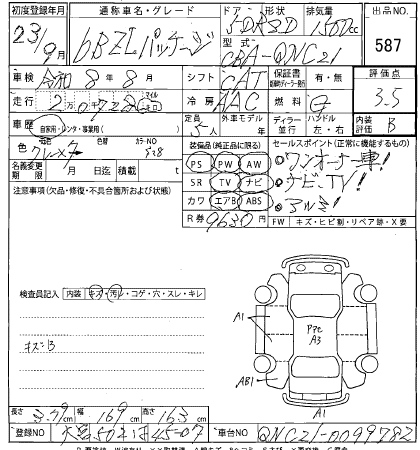 初度登録年月 通称車名・グレード ドア 形状 排気量 出品NO
23/9月 bBZLパッケージ 5D 1500cc 587
型式 CBA-QNC21
車検 令和8年8月 シフト CAT 保証書 有・無 評価点
走行 2万0728 マイル キロ 冷房 AAC 燃料 G 3.5
車歴 自家用・レンタ・事業用( ) 定員 5人 外車モデル 年 ディーラー 並行 ハンドル 左・右 内装評価 B
色 色替 カラーNO
名義変更期限 月 日迄 積載 t
装備品(純正品に限る) セールスポイント(正常に機能するもの)
PS PW AW ワンオーナー車!
SR TV ナビ ナビ、TV!
カワ エアB ABS アルミ!
R券 9630円 FW キズ・ヒビ割・リペア跡・X要
注意事項(欠品・修復・不具合箇所および状態)
検査員記入 内装 キズ・汚レ・コゲ・穴・スレ・キレ
キズB
A1
PPC
A3
AB1
A1
長さ 3.79m 幅 169cm 高さ 163cm
登録NO 45-07 車台NO QNC21-0099782